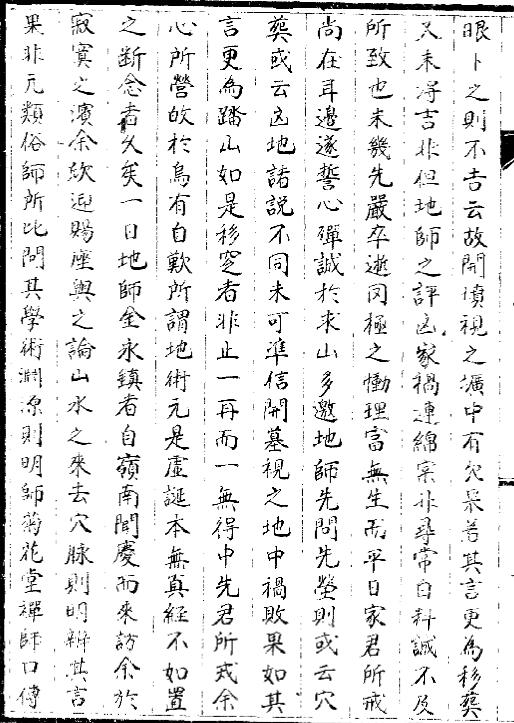 眼卜之則不吉云故開墳視之壙中有欠果若其言更爲移葬
又未得吉非但地師之評凶家禍連綿宲非尋常自料誠不及
所致也未幾先嚴卒逝罔極之慟理當無生而平日家君所戒
尚在耳邊遂誓心殫誠於求山多邀地師先問先塋則或云穴
葬或云凶地諸說不同未可準信開墓視之地中禍敗果如其
言更爲踏山如是移窆者非止一再而一無得中先君所戒余
心所營故於烏有自歎所謂地術元是虛誕本無真経不如置
之断念者久矣一日地師金永鎮者自嶺南聞慶而來訪余於
寂寞之濱余欣迎賜座與之論山水之來去穴脉則明辨其言
果非元類俗師所比問其學術淵源則明師菊花堂禪師口傳